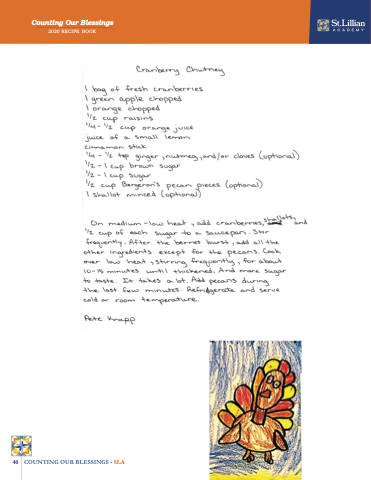 Counting Our Blessings
2020 RECIPE BOOK
St.Lillian
ACADEMY
Cranberry Chutney
1 bag of fresh cranberries
1 green apple chopped
1 orange chopped
1/2 cup raisins
1/4 - 1/2 cup orange juice
juice of a small lemon
cinnamon stick
1/4 - 1/2 tsp ginger, nutmeg, and/or cloves (optional)
1/2 - 1 cup brown sugar
1/2 - 1 cup sugar
1/2 cup Bergeron's pecan pieces (optional)
1 shallot minced (optional)
On medium-low heat, add cranberries, shallots, and
1/2 cup of each sugar to a saucepan. Stir
frequently. After the berries burst, add all the
other ingredients except for the pecans. Cook
over low heat, stirring frequently, for about
10-15 minutes until thickened. And more sugar
to taste. It takes a lot. Add pecans during
the last few minutes. Refridgerate and serve
cold or room temperature.
Pete Knapp
40 COUNTING OUR BLESSINGS - SLA